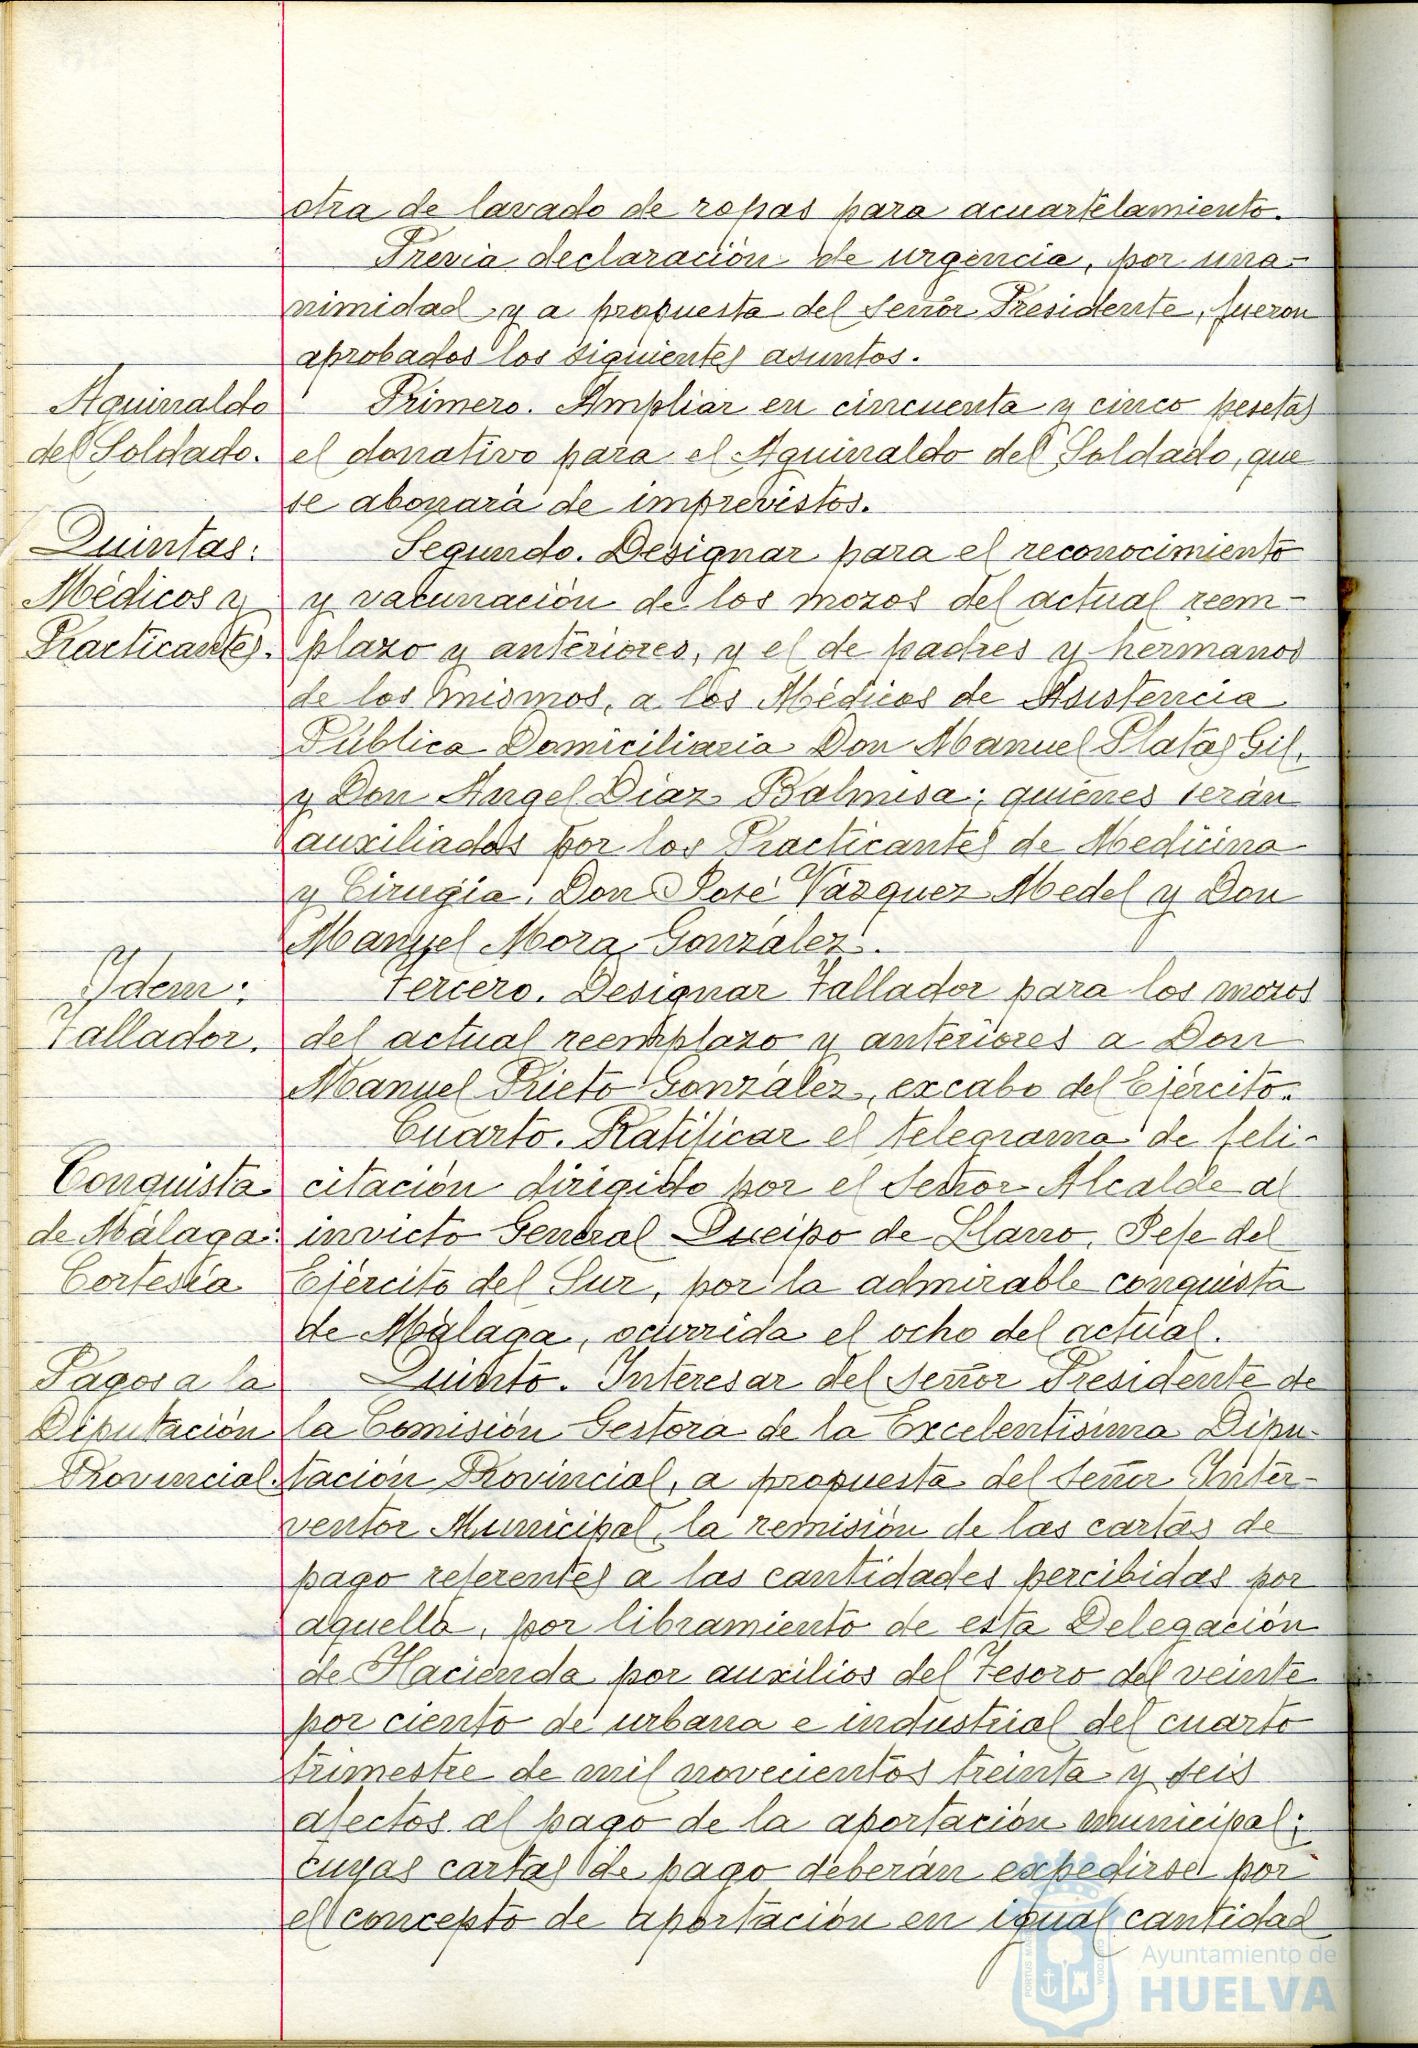 otra de lavado de ropas para acuartelamiento.
Previa declaración de urgencia, por una-
nimidad y a propuesta del Señor Presidente, fueron
aprobados los siguientes asuntos.
Aguinaldo
del Soldado.
Primero. Ampliar en cincuenta y cinco pesetas
el donativo para el Aguinaldo del Soldado, que
se abonará de imprevistos.
Quintas:
Médicos y
Practicantes.
Segundo. Designar para el reconocimiento
y vacunación de los mozos del actual reem-
plazo y anteriores, y el de padres y hermanos
de los mismos, a los Médicos de Asistencia
Pública Domiciliaria Don Manuel Platas Gil,
y Don Angel Diaz Balmisa; quiénes serán
auxiliados por los Practicantes de Medicina
y Cirugía, Don José Vázquez Medel y Don
Manuel Mora González.
Idem:
Tallador.
Tercero. Designar Tallador para los mozos
del actual reemplazo y anteriores a Don
Manuel Prieto González, excabo del Ejército.
Conquista
de Málaga:
Cortesía
Cuarto. Ratificar el telegrama de feli-
citación dirigido por el Señor Alcalde al
invicto General Queipo de Llano, Jefe del
Ejército del Sur, por la admirable conquista
de Málaga, ocurrida el ocho del actual.
Pagos a la
Diputación
Provincial.
Quinto. Interesar del Señor Presidente de
la Comisión Gestora de la Excelentísima Dipu-
tación Provincial, a propuesta del Señor Inter-
ventor Municipal, la remisión de las cartas de
pago referentes a las cantidades percibidas por
aquella, por libramiento de esta Delegación
de Hacienda por auxilios del Tesoro del veinte
por ciento de urbana e industrial del cuarto
trimestre de mil novecientos treinta y seis
afectos al pago de la aportación municipal;
cuyas cartas de pago deberán expedirse por
el concepto de aportación en igual cantidad
Ayuntamiento de
HUELVA